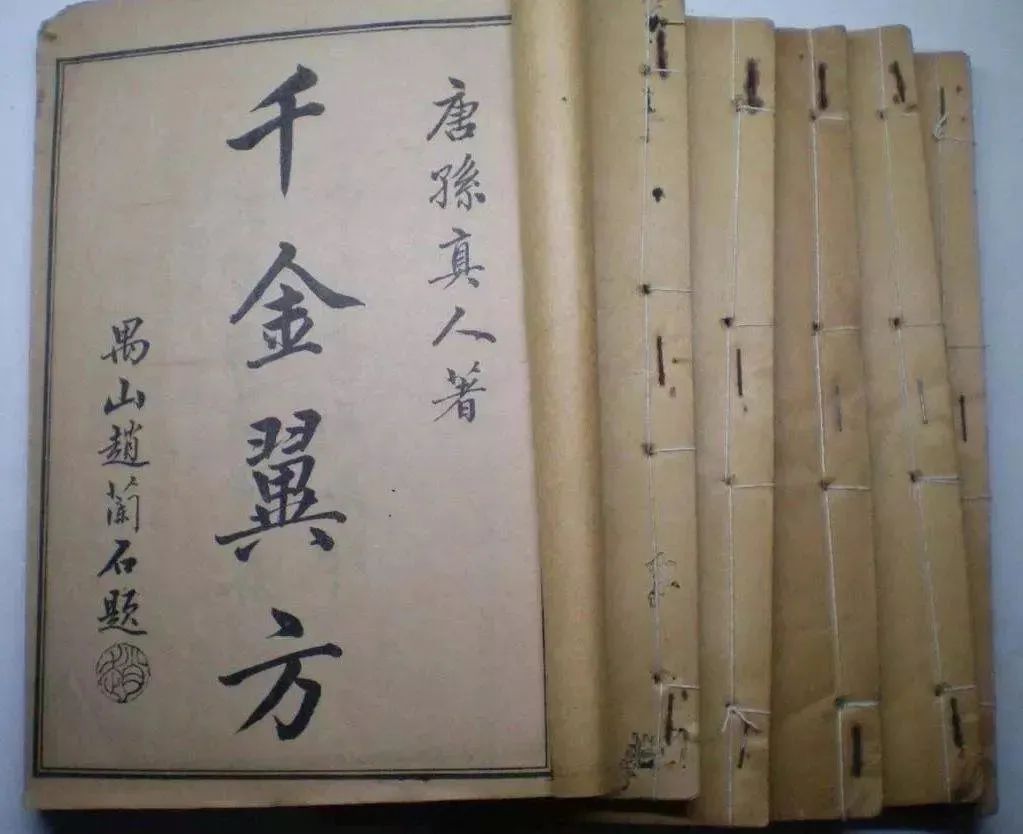 唐孫真人著
千金翼方
禺山趙蘭石題